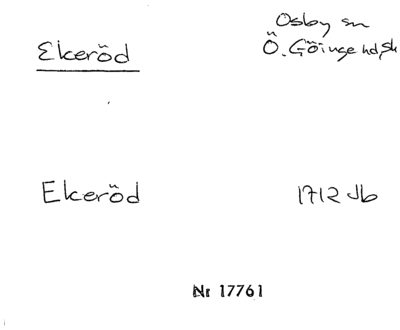 Osby sn
Ekeröd
Ö. Göinge hd, Sk
Ekeröd
1712 Jb
Nr 17761